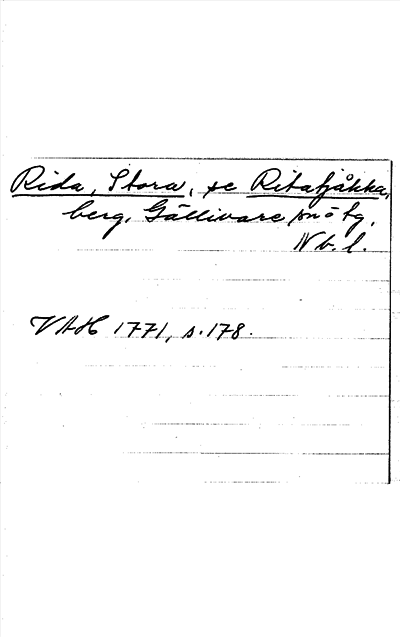 Rida, Stora, se Ritatjåkka,
berg, Gällivare sn o tg,
Nb. l.
VAH 1771, s. 178.